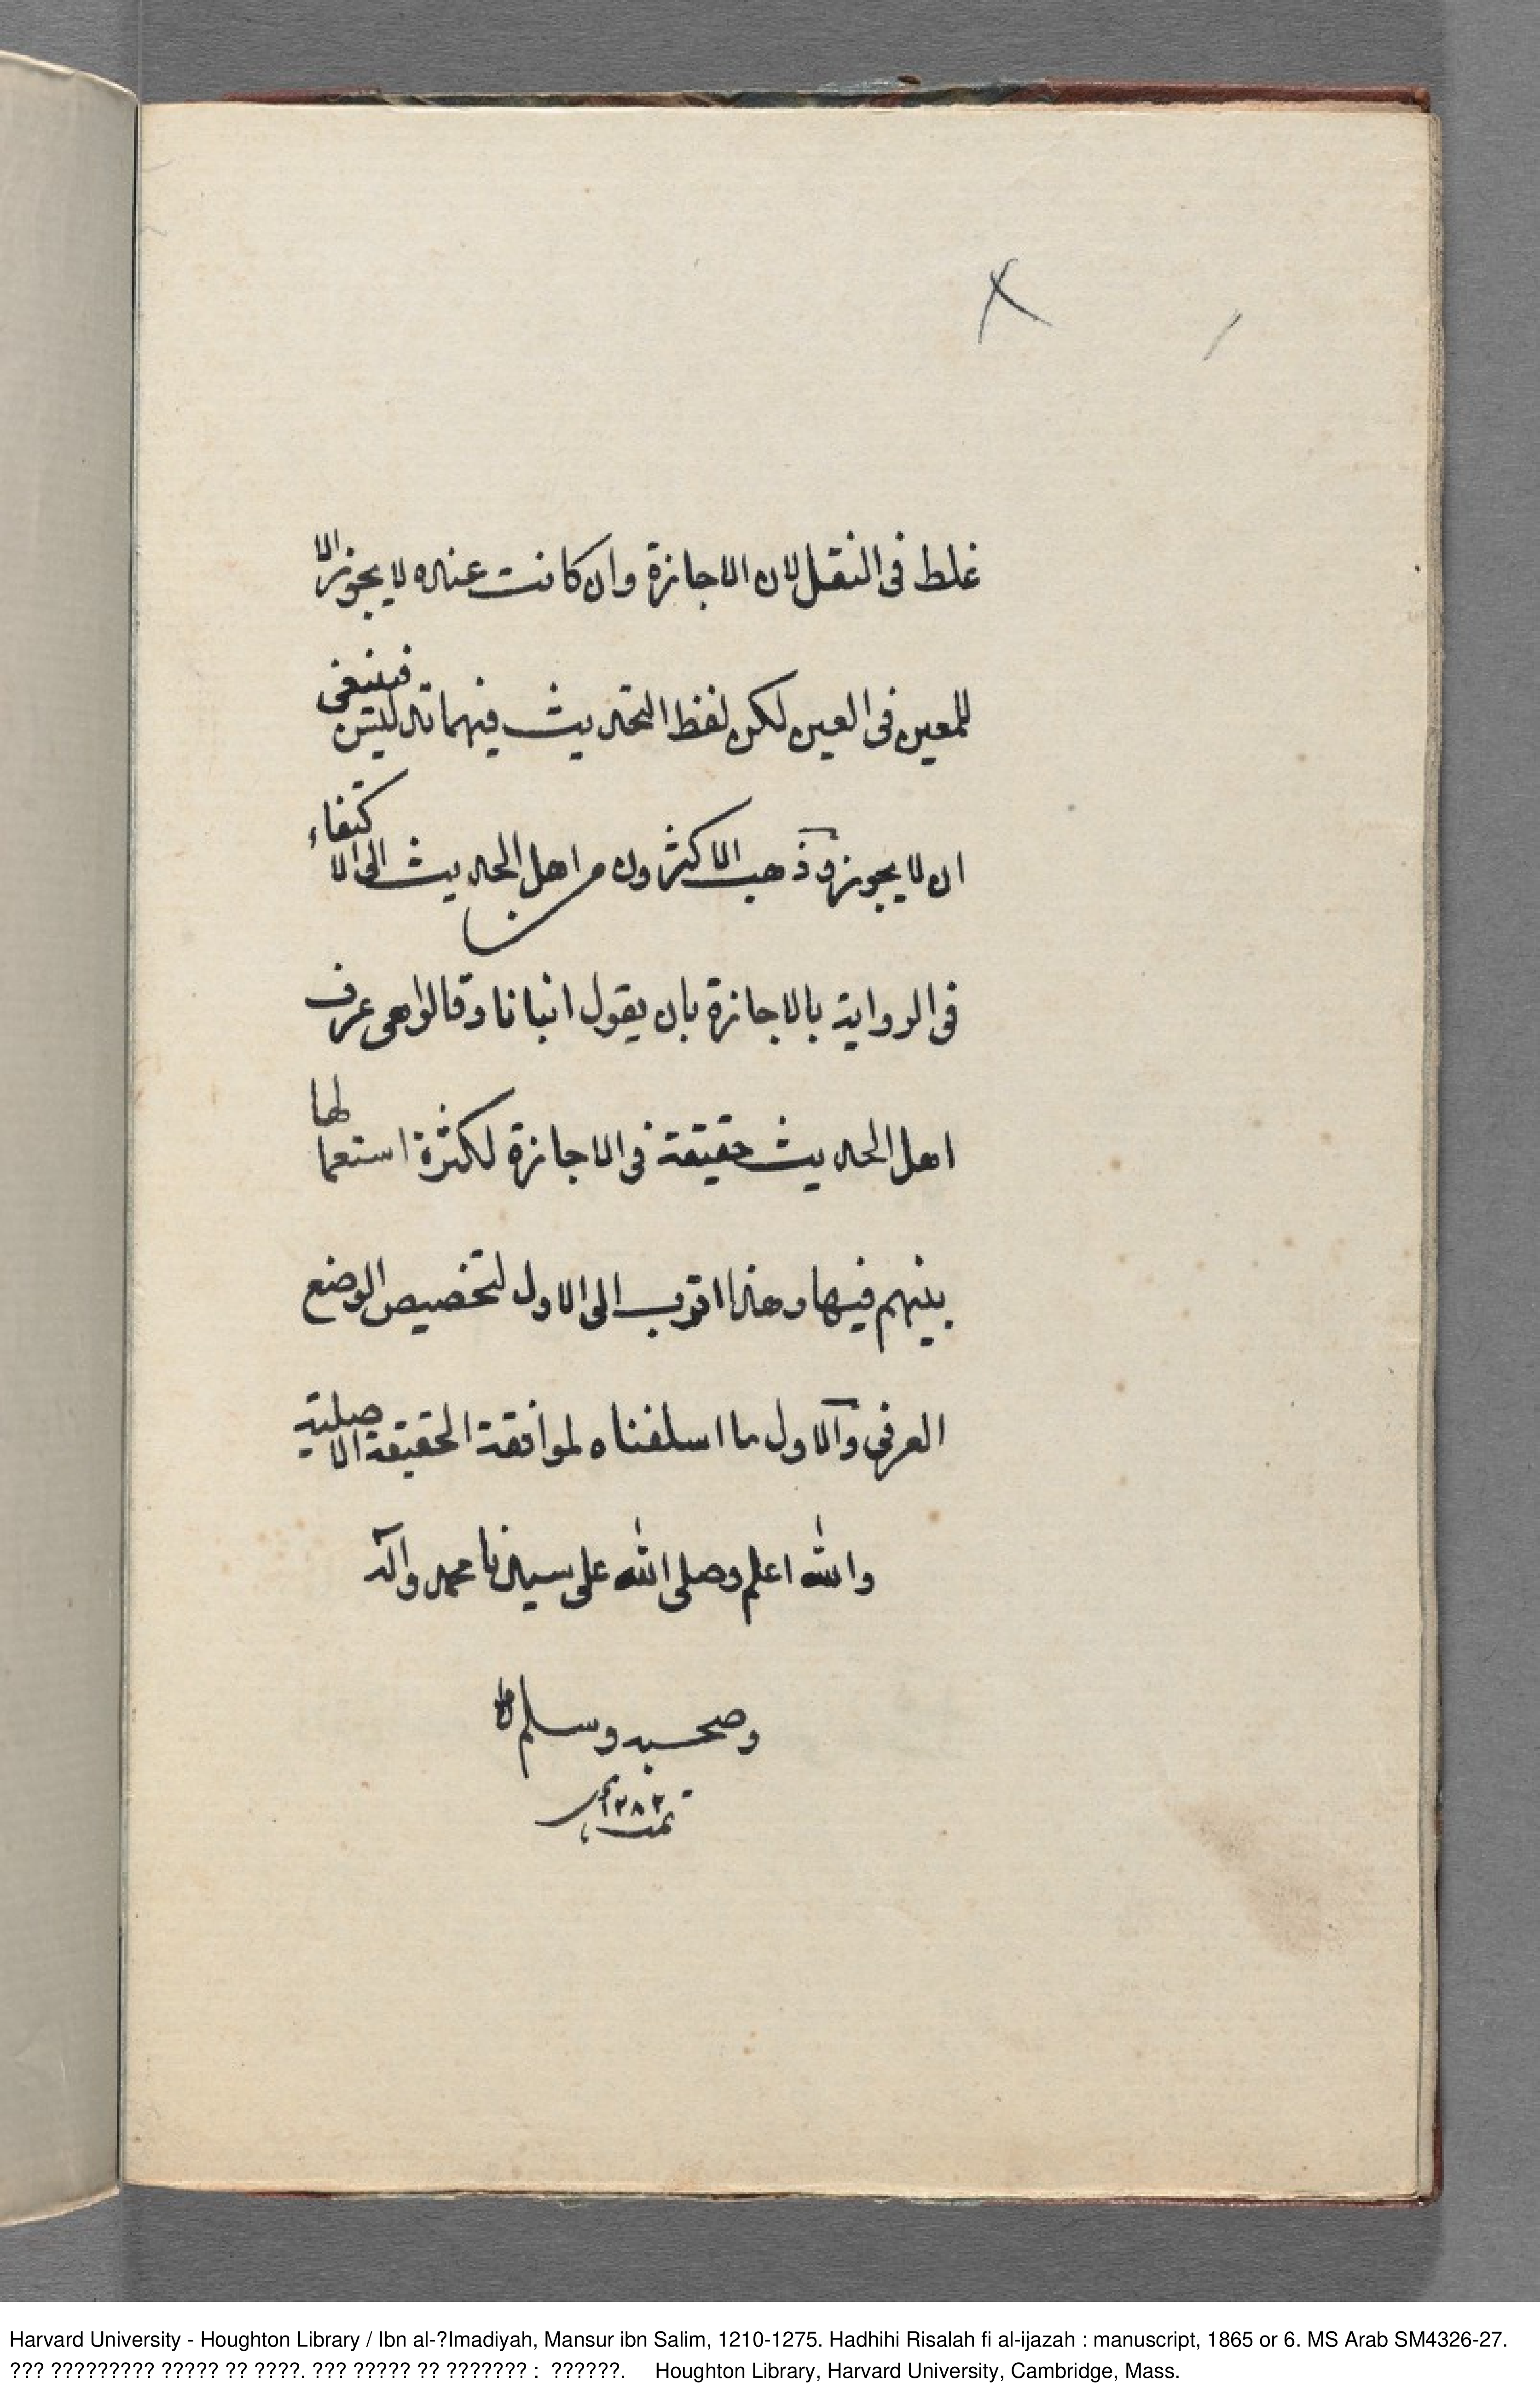 غلط فى النقل لان الاجازة وان كانت عنده لا يجوز الا
للمعين فى العين لكن لفظ التحديث فيهما تدليس فينبغى
ان لا يجوز وذهب الاكثرون من اهل الحديث الى الاكتفاء
فى الرواية بالاجازة بان يقول انبانا وقالوا هى عرف
اهل الحديث حقيقة فى الاجازة لكثرة استعمالها
بينهم فيها وهذا اقرب الى الاول لتخصيص الوضع
العرفى والاول ما اسلفناه لموافقة الحقيقة الاصلية
والله اعلم وصلى الله على سيدنا محمد وآله
وصحبه وسلم
١٢٨٢
تمت
Harvard University - Houghton Library / Ibn al-?Imadiyah, Mansur ibn Salim, 1210-1275. Hadhihi Risalah fi al-ijazah : manuscript, 1865 or 6. MS Arab SM4326-27.
??? ????????? ????? ?? ????. ??? ????? ?? ??????? : ??????. Houghton Library, Harvard University, Cambridge, Mass.